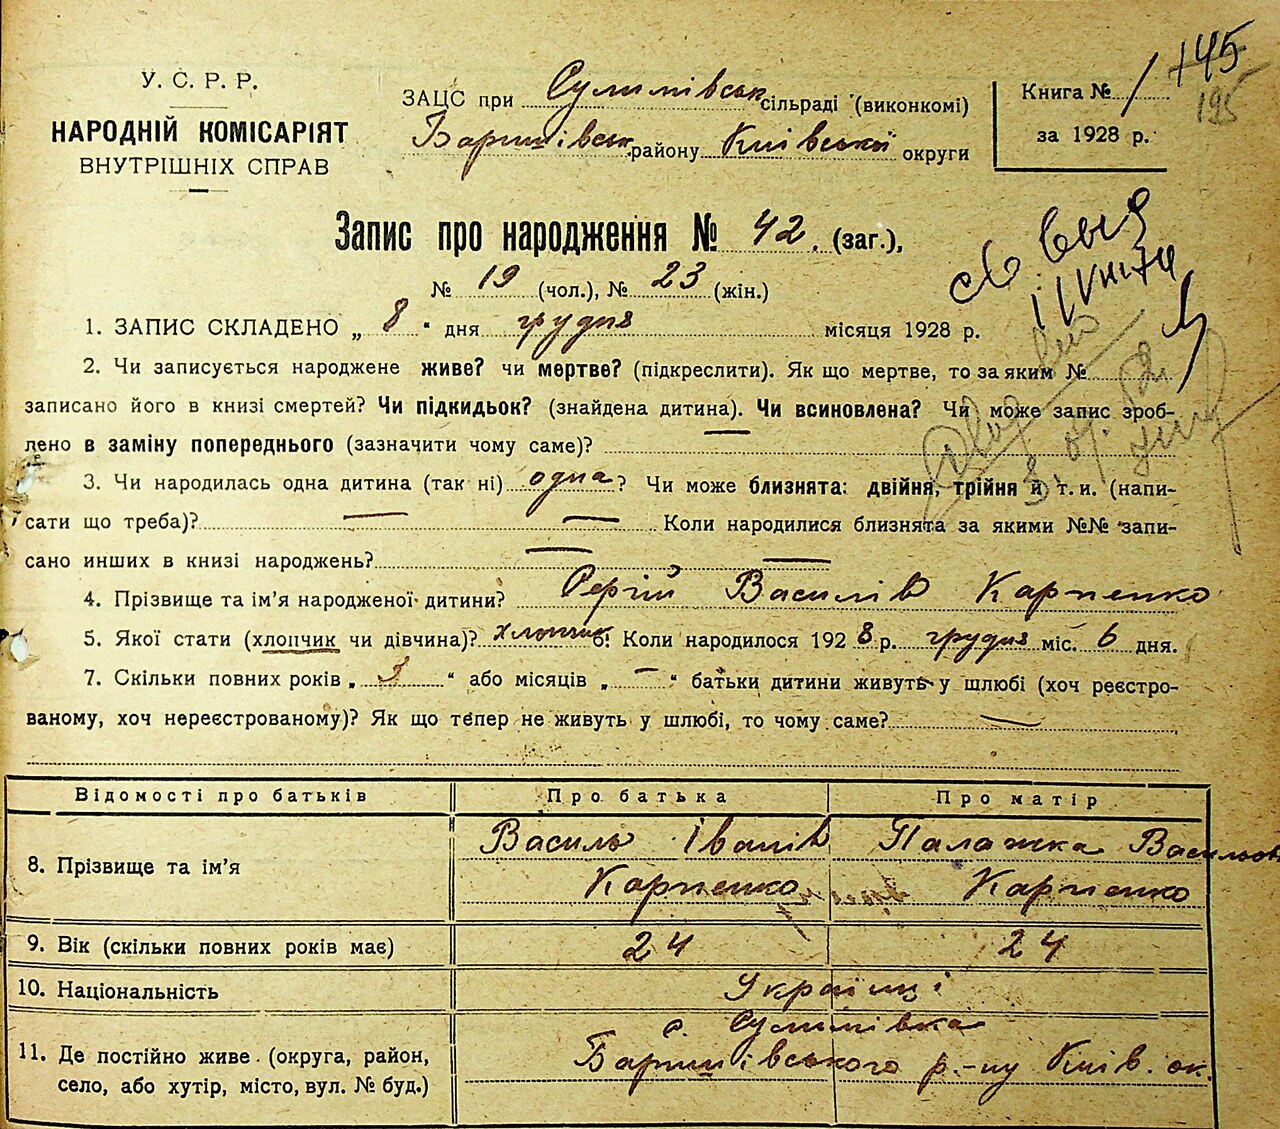 145
195
У. С. Р. Р.
НАРОДНІЙ КОМІСАРІЯТ
ВНУТРІШНІХ СПРАВ
ЗАЦС при Сулимівськ сільраді (виконкомі)
Баришівськ району Київської округи
Книга № 1
за 1928 р.
Запис про народження № 42. (заг.),
№ 19 (чол.), № 23 (жін.)
1. ЗАПИС СКЛАДЕНО „ 8 “ дня грудня місяця 1928 р.
2. Чи записується народжене живе? чи мертве? (підкреслити). Як що мертве, то за яким №
записано його в книзі смертей? Чи підкидьок? (знайдена дитина). Чи всиновлена? Чи може запис зроб-
лено в заміну попереднього (зазначити чому саме)?
3. Чи народилась одна дитина (так ні) одна? Чи може близнята: двійня, трійня й т. и. (напи-
сати що треба)? — — Коли народилися близнята за якими №№ запи-
сано инших в книзі народжень? — —
4. Прізвище та ім’я народженої дитини? Сергій Василів Карпенко
5. Якої стати (хлопчик чи дівчина)? хлопчик 6. Коли народилося 1928 р. грудня міс. 6 дня.
7. Скільки повних років „ 3 “ або місяців „ — “ батьки дитини живуть у шлюбі (хоч реєстро-
ваному, хоч нереєстрованому)? Як що тепер не живуть у шлюбі, то чому саме? —
Відомості про батьків Про батька Про матір
8. Прізвище та ім’я
Василь Іванів Палажка Васильов
Карпенко Карпенко
9. Вік (скільки повних років має) 24 24
10. Національність Українці
11. Де постійно живе (округа, район,
село, або хутір, місто, вул. № буд.)
с. Сулимівка
Баришівського р-ну Київ. ок.